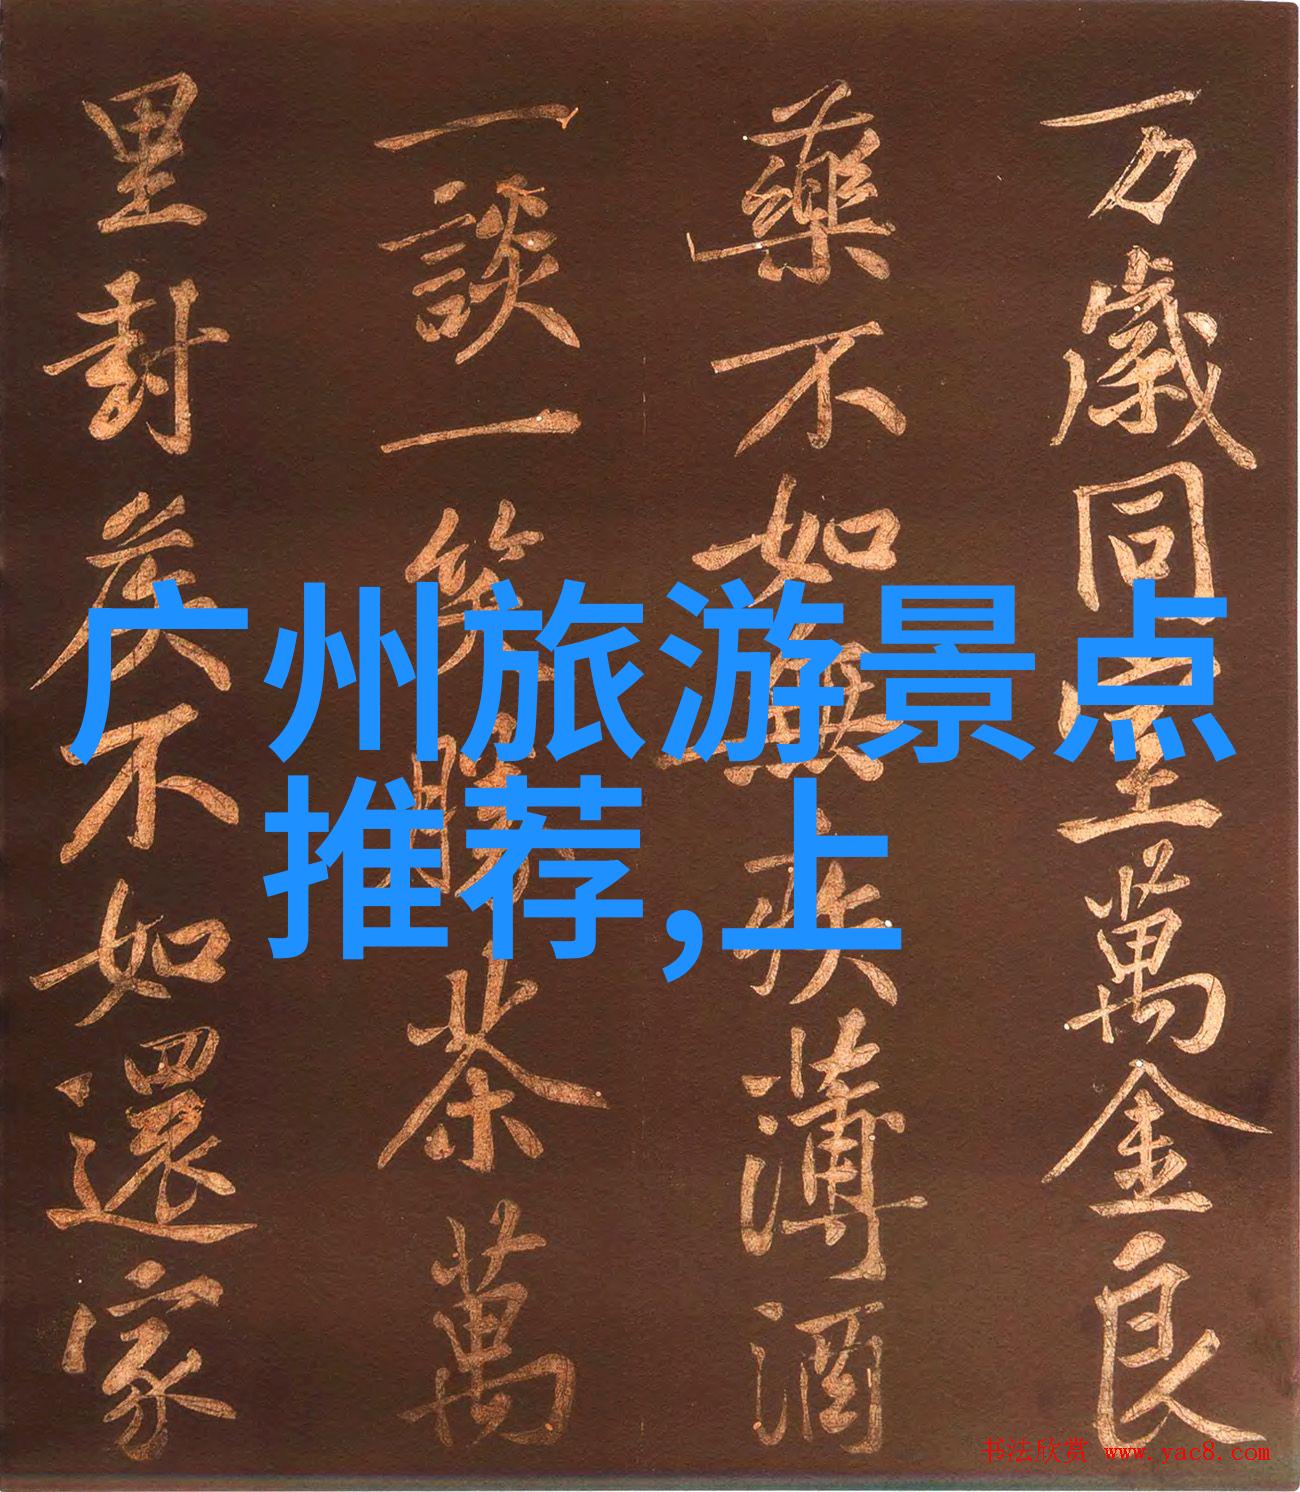 万歲同室萬金良
藥不如無疾薄酒
一談一笑勝茶萬
里封侯不如還家
广州旅游景点
推荐,上
书法欣赏 www.yac8.com